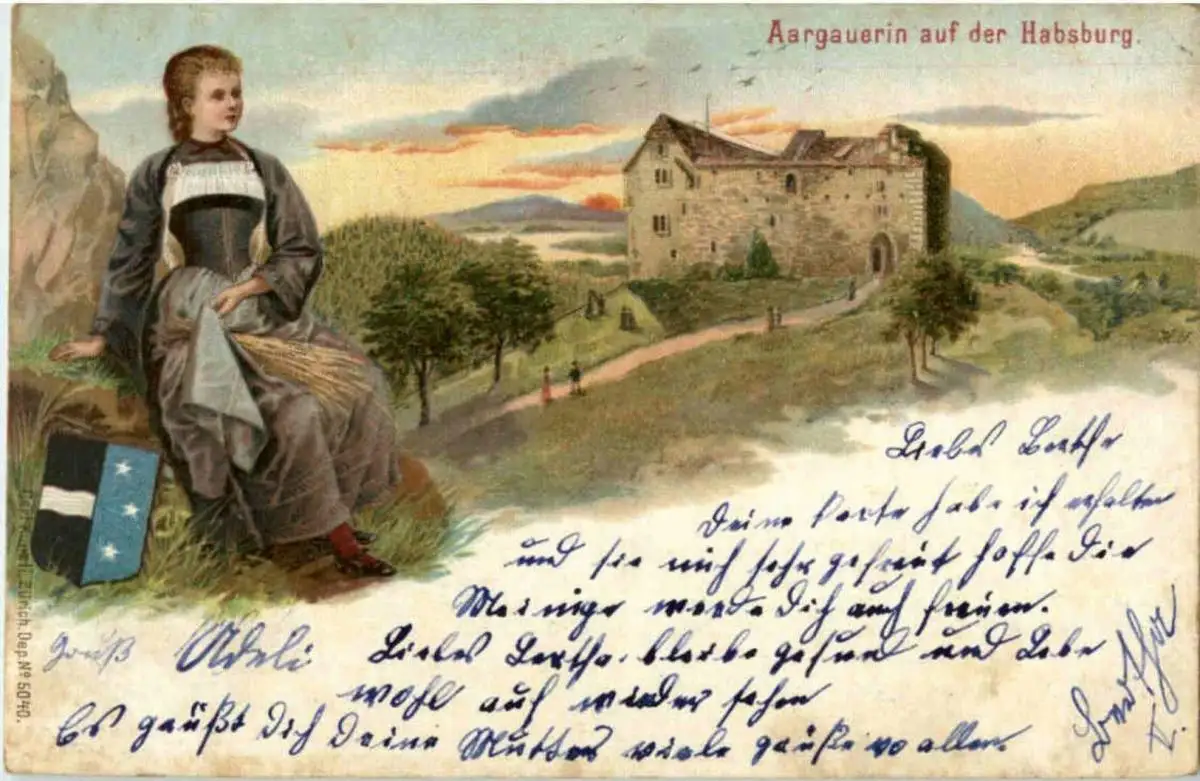 Aargauerin auf der Habsburg.
Liebes Bertha
Deine Karte habe ich erhalten
und sie mich sehr gefreut hoffe die
Meinige werde Dich auch freuen.
Liebes Bertha. bleibe gesund und Lebe
wohl auf wieder sehen
Gruß Adeli
Es grüßt Dich Deine Mutter viele grüße vo allen.
Bertha
Zürich. Dep. Nº 5040.